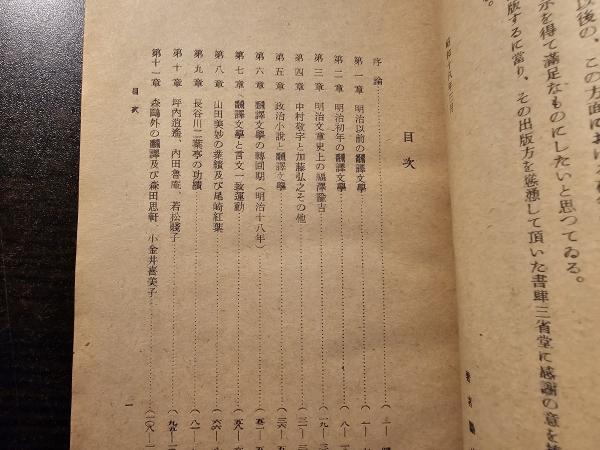 以後の、この方面における
示を得て滿足なものにしたいと思つてゐる。
出版するに當り、その出版方を慫慂して頂いた書肆三省堂に感謝の意を
昭和十八年
著者
目次
序論
第一章 明治以前の飜譯文學
第二章 明治初年の飜譯文學
第三章 明治文章史上の福澤諭吉
第四章 中村敬宇と加藤弘之その他
第五章 政治小說と飜譯文學
第六章 飜譯文學の轉回期(明治十八年)
第七章 飜譯文學と言文一致運動
第八章 山田美妙の業績及び尾崎紅葉
第九章 長谷川二葉亭の功績
第十章 坪內逍遙、內田魯庵、若松賤子
第十一章 森鷗外の飜譯及び森田思軒、小金井喜美子
目次
一